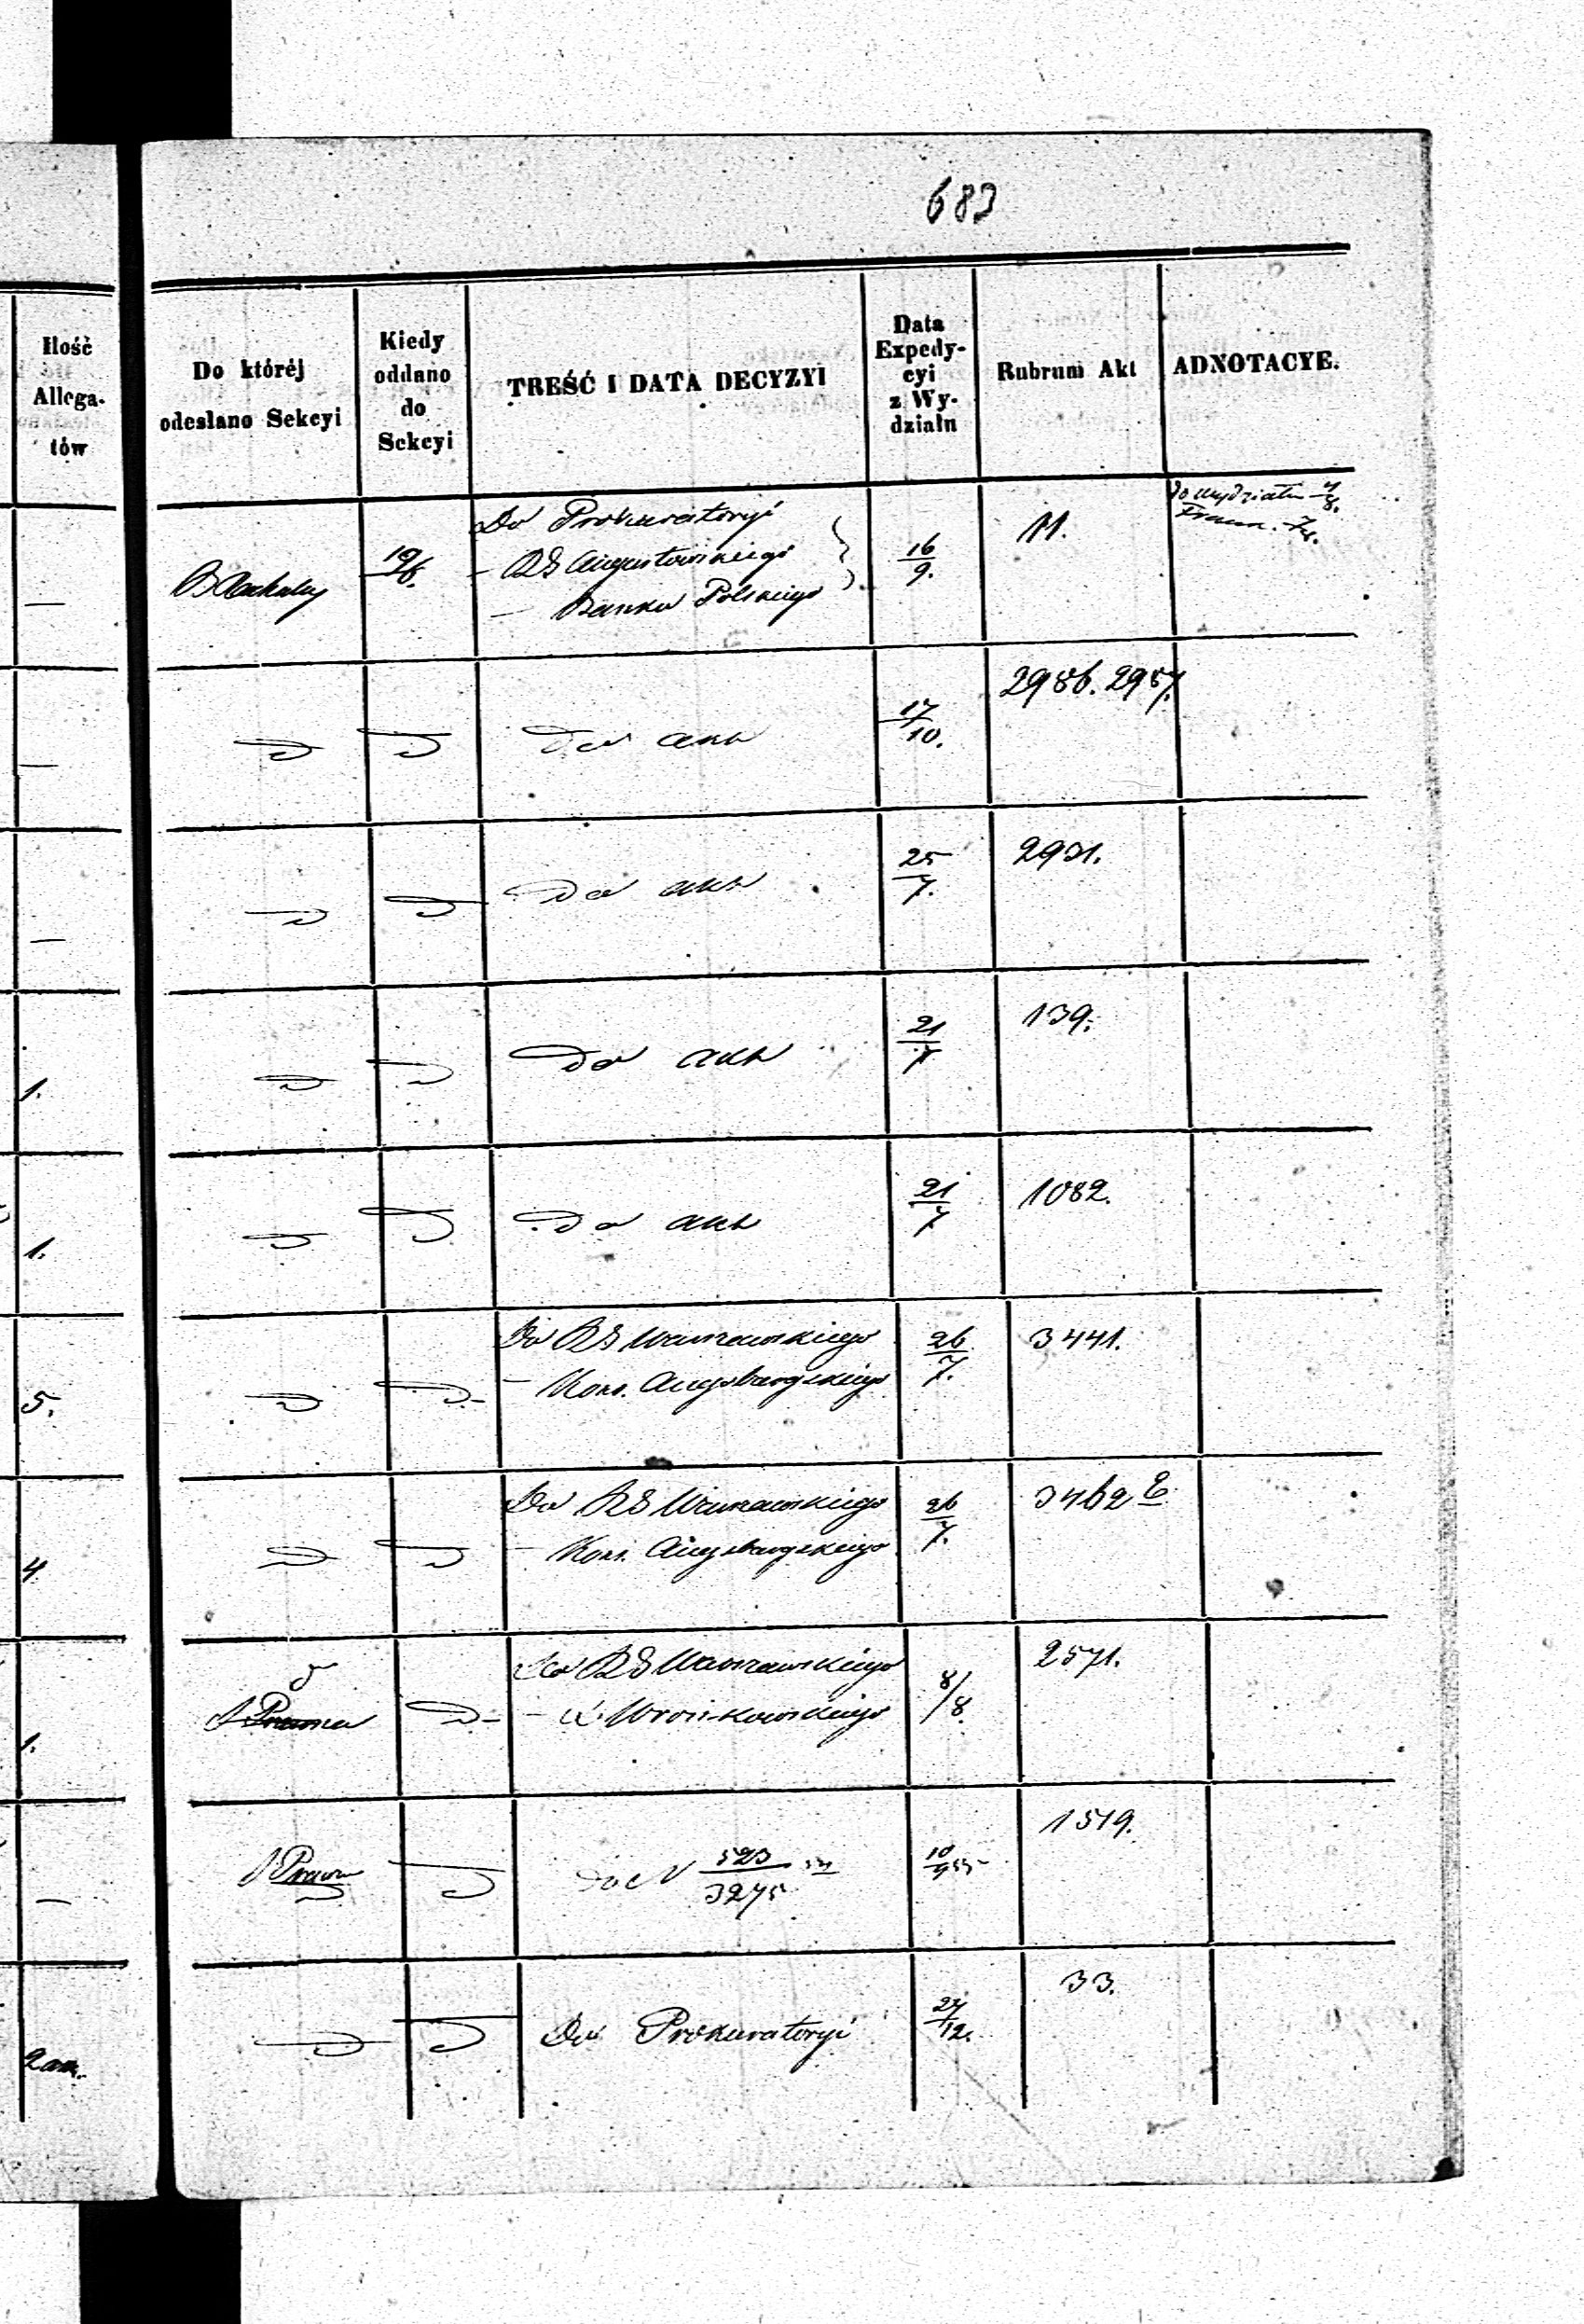 683
Ilość
Allega-
tów
Do któréj
odesłano Sekcyi
Kiedy
oddano
do
Sekcyi
TREŚĆ I DATA DECYZYI
Data
Expedy-
cyi
z Wy-
działu
Rubrum Akt
ADNOTACYE.
—
19/6.
Do Prokuratoryi
- RG Augustowskiego
— Banku Polskiego
16/9.
11.
do wydziału
—
Do akt
17/10.
2986. 2987.
—
Do akt
25/7.
2931.
1.
Do akt
21/7
139.
1.
Do akt
21/7
1082.
5.
Do RG Warszawskiego
— Kons. Augsburgskiego
26/7.
3441.
4
Do RG Warszawskiego
— Kons. Augsburgskiego
26/7.
3462
1.
Do RG Warszawskiego
8/8.
2571.
—
do N 523/3275
10/9 55
1519.
Do Prokuratoryi
27/12.
33.